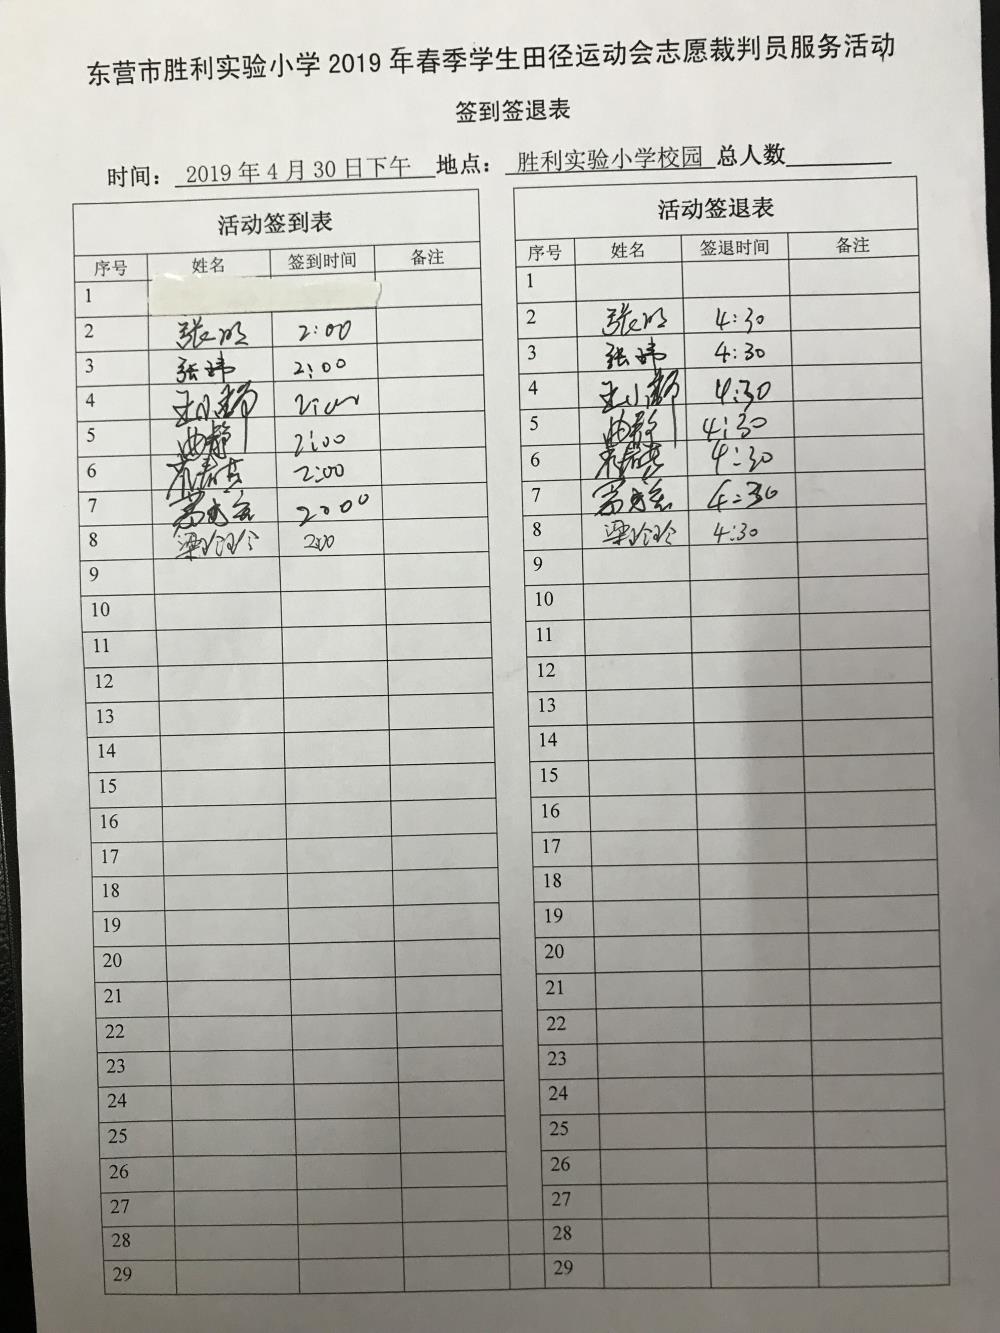 东营市胜利实验小学2019年春季学生田径运动会志愿裁判员服务活动
签到签退表
时间： 2019年4月30日下午 地点： 胜利实验小学校园 总人数
活动签到表 活动签退表
序号 姓名 签到时间 备注 序号 姓名 签退时间 备注
1 1
2 张明 2:00 2 张明 4:30
3 张玮 2:00 3 张玮 4:30
4 2:00 4 4:30
5 曲静 2:00 5 曲静 4:30
6 2:00 6 4:30
7 2:00 7 4:30
8 梁玲玲 2:00 8 梁玲玲 4:30
9 9
10 10
11 11
12 12
13 13
14 14
15 15
16 16
17 17
18 18
19 19
20 20
21 21
22 22
23 23
24 24
25 25
26 26
27 27
28 28
29 29